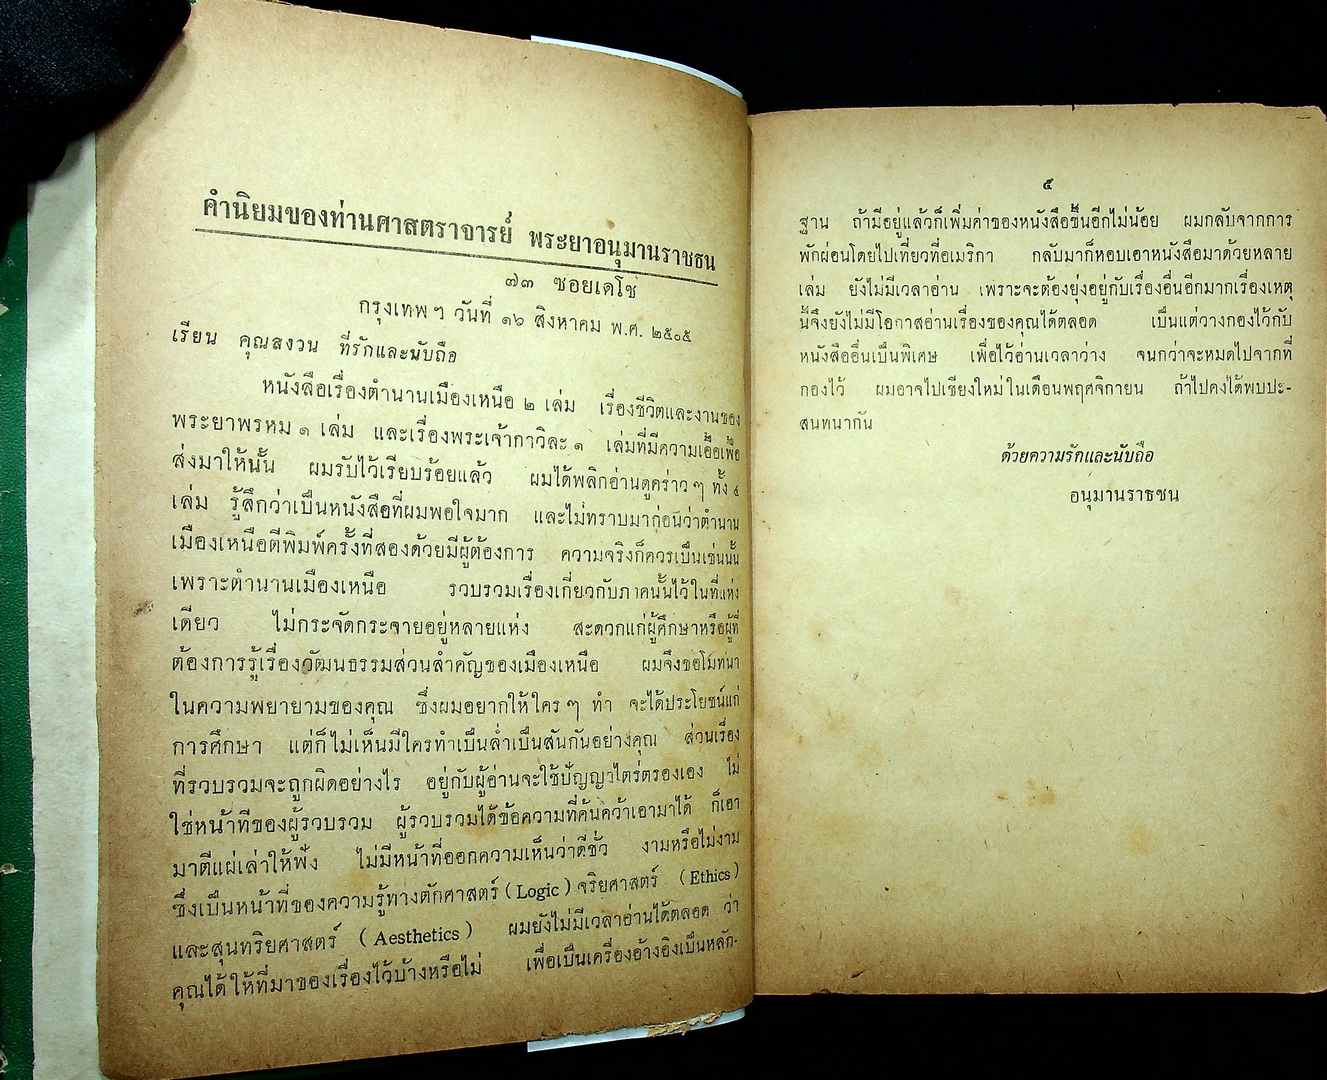 คำนิยมของท่านศาสตราจารย์ พระยาอนุมานราชธน
๗๓ ซอยเดโช
กรุงเทพฯ วันที่ ๑๖ สิงหาคม พ.ศ. ๒๕๐๕
เรียน คุณสงวน ที่รักและนับถือ
หนังสือเรื่องตำนานเมืองเหนือ ๒ เล่ม เรื่องชีวิตและงานของ
พระยาพรหม ๑ เล่ม และเรื่องพระเจ้ากาวิละ ๑ เล่มที่มีความเอื้อเฟื้อ
ส่งมาให้นั้น ผมรับไว้เรียบร้อยแล้ว ผมได้พลิกอ่านดูคร่าว ๆ ทั้ง ๔
เล่ม รู้สึกว่าเป็นหนังสือที่ผมพอใจมาก และไม่ทราบมาก่อนว่าตำนาน
เมืองเหนือตีพิมพ์ครั้งที่สองด้วยมีผู้ต้องการ ความจริงก็ควรเป็นเช่นนั้น
เพราะตำนานเมืองเหนือ รวบรวมเรื่องเกี่ยวกับภาคนั้นไว้ในที่แห่ง
เดียว ไม่กระจัดกระจายอยู่หลายแห่ง สะดวกแก่ผู้ศึกษาหรือผู้ที่
ต้องการรู้เรื่องวัฒนธรรมส่วนสำคัญของเมืองเหนือ ผมจึงขอโมทนา
ในความพยายามของคุณ ซึ่งผมอยากให้ใคร ๆ ทำ จะได้ประโยชน์แก่
การศึกษา แต่ก็ไม่เห็นมีใครทำเป็นล่ำเป็นสันกันอย่างคุณ ส่วนเรื่อง
ที่รวบรวมจะถูกผิดอย่างไร อยู่กับผู้อ่านจะใช้ปัญญาไตร่ตรองเอง ไม่
ใช่หน้าที่ของผู้รวบรวม ผู้รวบรวมได้ข้อความที่ค้นคว้าเอามาได้ ก็เอา
มาตีแผ่เล่าให้ฟัง ไม่มีหน้าที่ออกความเห็นว่าดีชั่ว งามหรือไม่งาม
ซึ่งเป็นหน้าที่ของความรู้ทางตักศาสตร์ (Logic) จริยศาสตร์ (Ethics)
และสุนทริยศาสตร์ (Aesthetics) ผมยังไม่มีเวลาอ่านได้ตลอด ว่า
คุณได้ให้ที่มาของเรื่องไว้บ้างหรือไม่ เพื่อเป็นเครื่องอ้างอิงเป็นหลัก-
๕
ฐาน ถ้ามีอยู่แล้วก็เพิ่มค่าของหนังสือขึ้นอีกไม่น้อย ผมกลับจากการ
พักผ่อนโดยไปเที่ยวที่อเมริกา กลับมาก็หอบเอาหนังสือมาด้วยหลาย
เล่ม ยังไม่มีเวลาอ่าน เพราะจะต้องยุ่งอยู่กับเรื่องอื่นอีกมากเรื่องเหตุ
นี้จึงยังไม่มีโอกาสอ่านเรื่องของคุณได้ตลอด เป็นแต่วางกองไว้กับ
หนังสืออื่นเป็นพิเศษ เพื่อไว้อ่านเวลาว่าง จนกว่าจะหมดไปจากที่
กองไว้ ผมอาจไปเชียงใหม่ในเดือนพฤศจิกายน ถ้าไปคงได้พบปะ-
สนทนากัน
ด้วยความรักและนับถือ
อนุมานราชธน